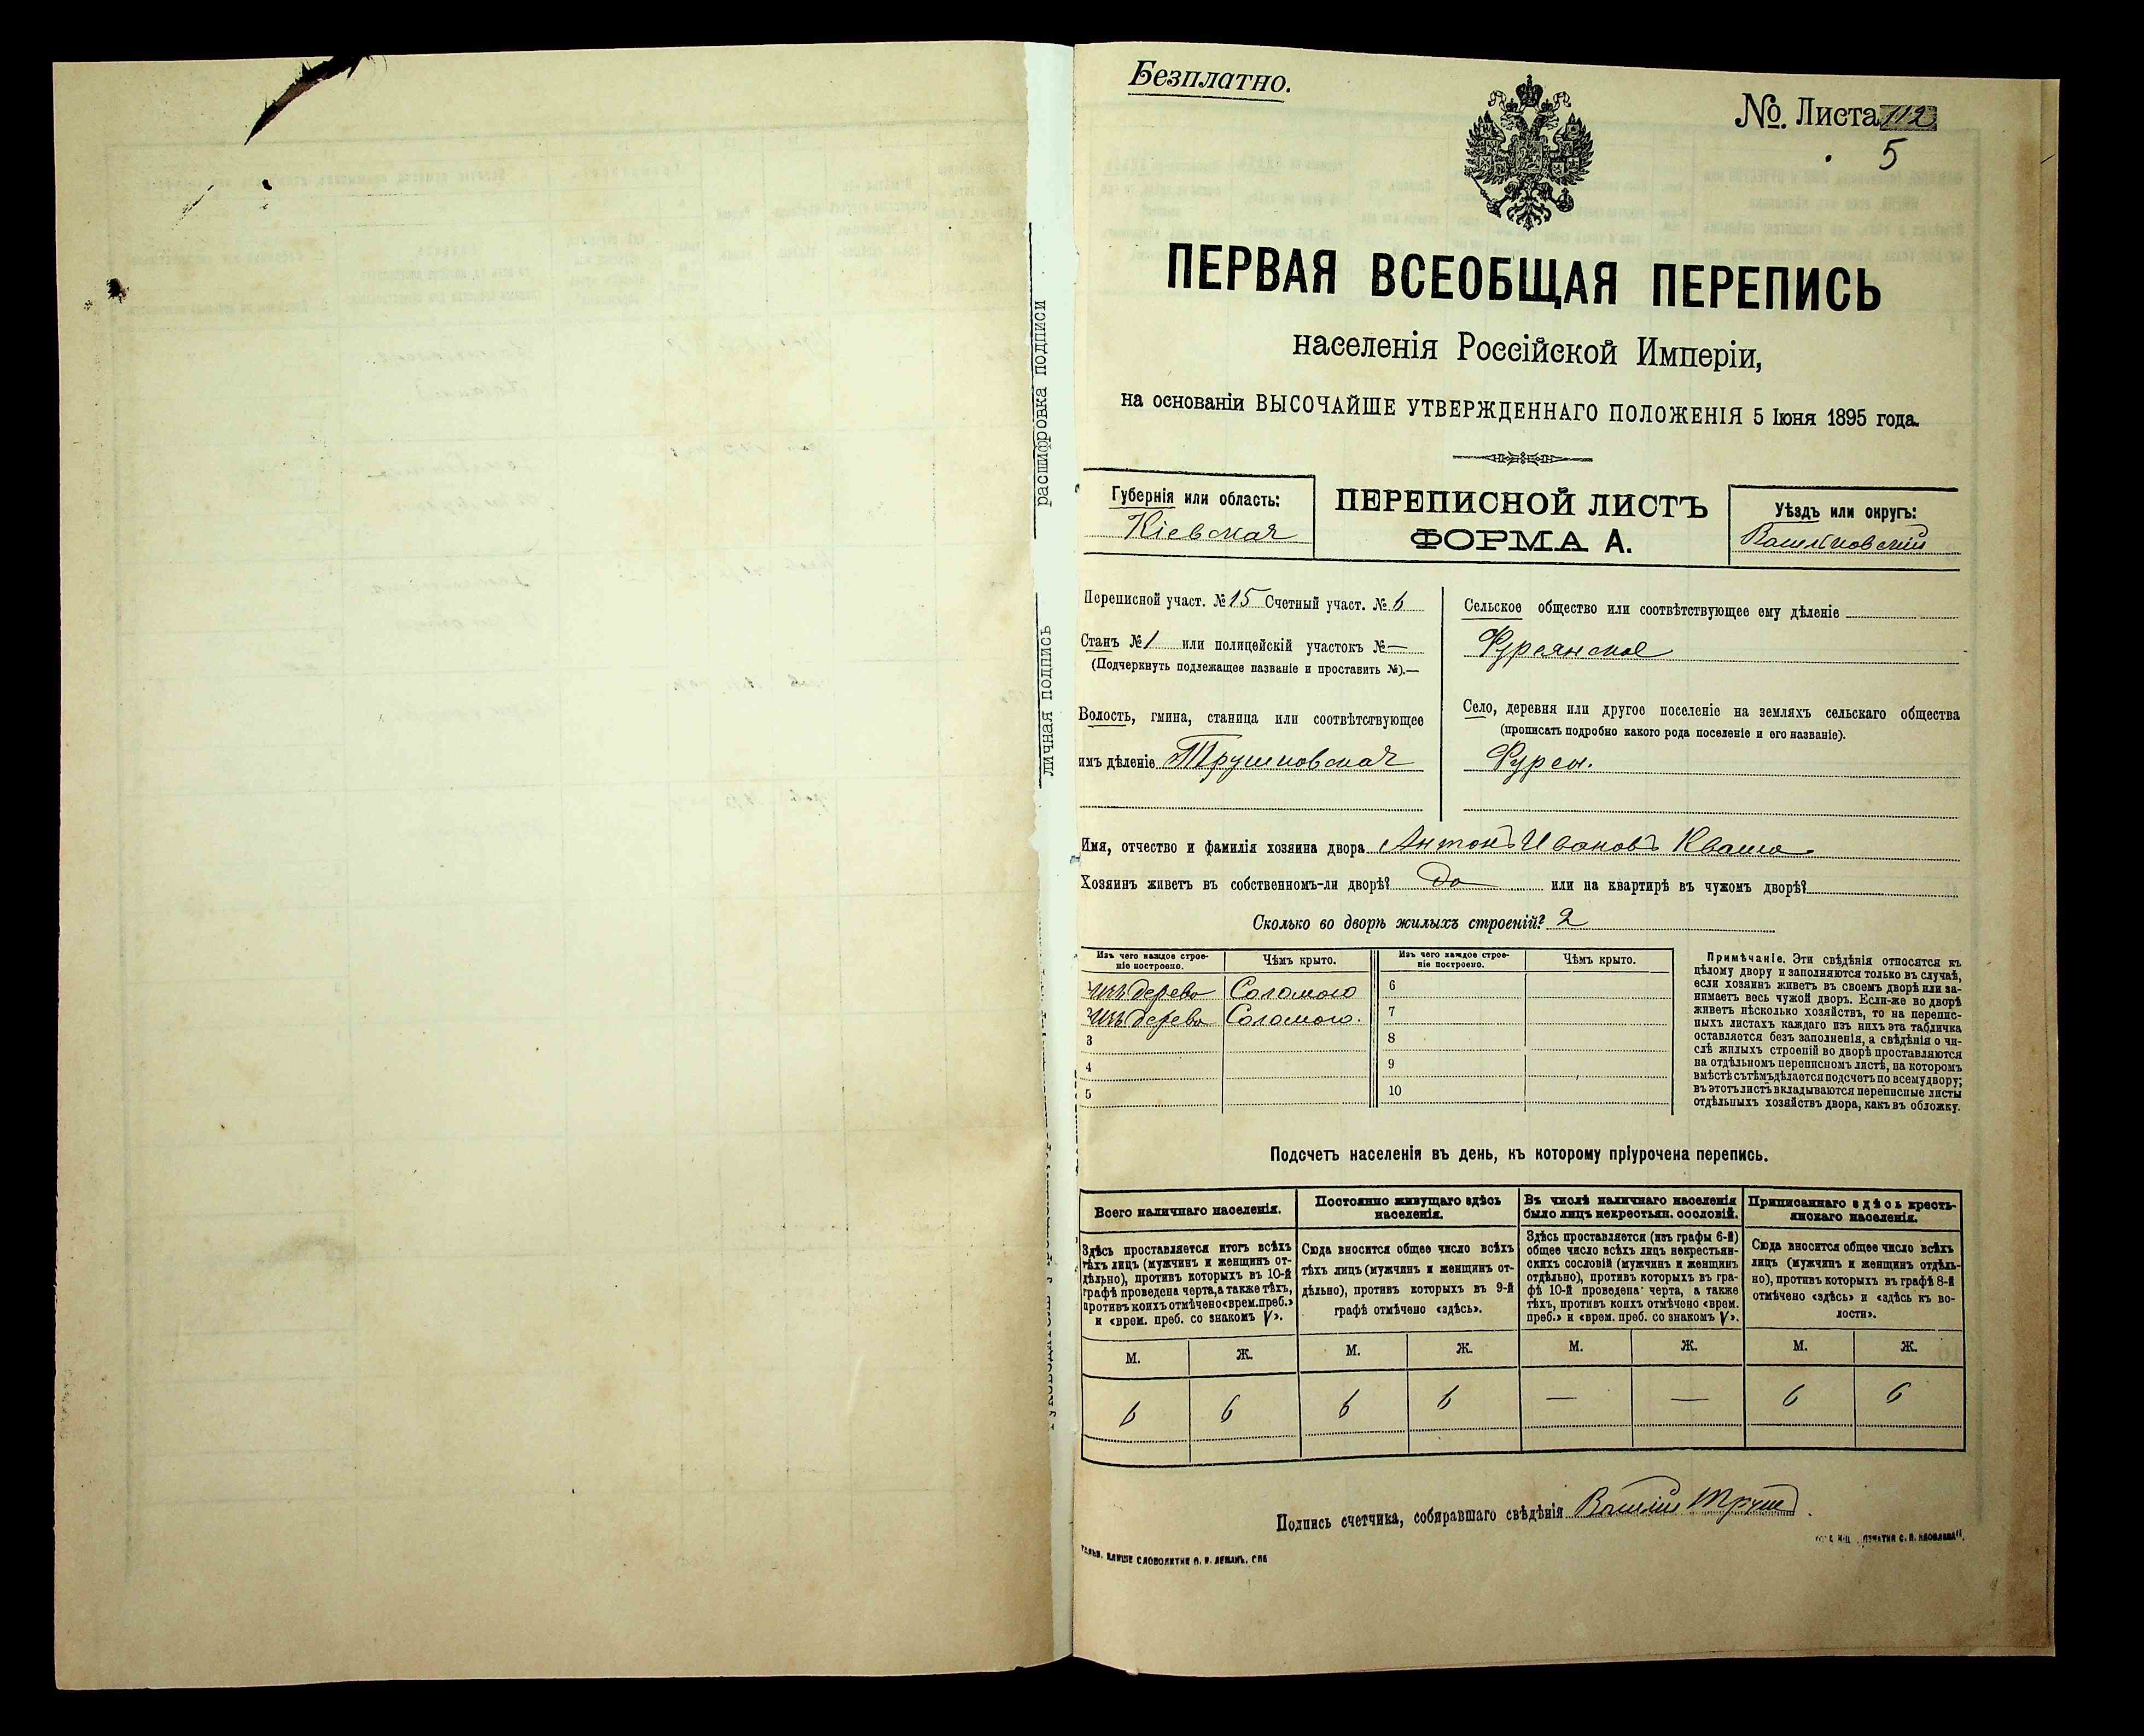 Безплатно.
№. Листа 112
5
ПЕРВАЯ ВСЕОБЩАЯ ПЕРЕПИСЬ
населенія Россійской Имперіи,
на основаніи ВЫСОЧАЙШЕ УТВЕРЖДЕННАГО ПОЛОЖЕНІЯ 5 Іюня 1895 года.
Губернія или область:
Кіевская
ПЕРЕПИСНОЙ ЛИСТЪ
ФОРМА А.
Уѣздъ или округъ:
Васильковскій
Переписной участ. № 15 Счетный участ. № 6
Станъ № 1 или полицейскій участокъ № —
(Подчеркнуть подлежащее названіе и проставить №).—
Волость, гмина, станица или соотвѣтствующее
имъ дѣленіе Трушковская
Сельское общество или соотвѣтствующее ему дѣленіе
Фурсянское
Село, деревня или другое поселеніе на земляхъ сельскаго общества
(прописать подробно какого рода поселеніе и его названіе).
Фурсы.
Имя, отчество и фамилія хозяина двора Антонъ Ивановъ Кваша
Хозяинъ живетъ въ собственномъ-ли дворѣ? да или на квартирѣ въ чужомъ дворѣ?
Сколько во дворѣ жилыхъ строеній? 2
Изъ чего каждое строе-
ніе построено.
Чѣмъ крыто.
Изъ чего каждое строе-
ніе построено.
Чѣмъ крыто.
1 Изъ дерева Соломою 6
2 Изъ дерева Соломою. 7
3 8
4 9
5 10
Примѣчаніе. Эти свѣдѣнія относятся къ
цѣлому двору и заполняются только въ случаѣ,
если хозяинъ живетъ въ своемъ дворѣ или за-
нимаетъ весь чужой дворъ. Если-же во дворѣ
живетъ нѣсколько хозяйствъ, то на перепис-
ныхъ листахъ каждаго изъ нихъ эта табличка
оставляется безъ заполненія, а свѣдѣнія о чи-
слѣ жилыхъ строеній во дворѣ проставляются
на отдѣльномъ переписномъ листѣ, на которомъ
вмѣстѣ сътѣмъ дѣлается подсчетъ по всему двору;
въ этотъ листъ вкладываются переписные листы
отдѣльныхъ хозяйствъ двора, какъ въ обложку.
Подсчетъ населенія въ день, къ которому пріурочена перепись.
Всего наличнаго населенія.
Постоянно живущаго здѣсь
населенія.
Въ числѣ наличнаго населенія
было лицъ некрестьян. сословій.
Приписаннаго здѣсь кресть-
янскаго населенія.
Здѣсь проставляется итогъ всѣхъ
тѣхъ лицъ (мужчинъ и женщинъ от-
дѣльно), противъ которыхъ въ 10-й
графѣ проведена черта, а также тѣхъ,
противъ коихъ отмѣчено «врем. преб.»
и «врем. преб. со знакомъ V».
Сюда вносится общее число всѣхъ
тѣхъ лицъ (мужчинъ и женщинъ от-
дѣльно), противъ которыхъ въ 9-й
графѣ отмѣчено «здѣсь».
Здѣсь проставляется (изъ графы 6-й)
общее число всѣхъ лицъ некрестьян-
скихъ сословій (мужчинъ и женщинъ
отдѣльно), противъ которыхъ въ гра-
фѣ 10-й проведена черта, а также
тѣхъ, противъ коихъ отмѣчено «врем.
преб.» и «врем. преб. со знакомъ V».
Сюда вносится общее число всѣхъ
лицъ (мужчинъ и женщинъ отдѣль-
но), противъ которыхъ въ графѣ 8-й
отмѣчено «здѣсь» и «здѣсь къ во-
лости».
М. Ж. М. Ж. М. Ж. М. Ж.
6 6 6 6 — — 6 6
Подпись счетчика, собиравшаго свѣдѣнія Василій Труш
КЛИШЕ СЛОВОЛИТНИ О. И. ЛЕМАНЪ, СПБ
ПЕЧАТНИ С. П. ЯКОВЛЕВА
расшифровка подписи
личная подпись